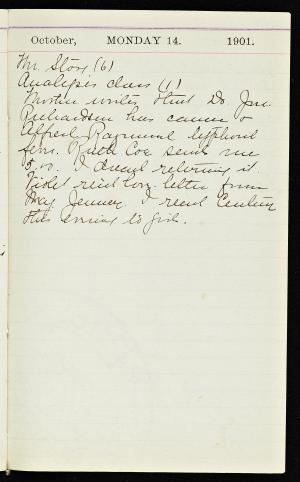 October, MONDAY 14. 1901.
Mr. Story (6)
Analysis class (1)
writes that Dr. Jno.
Richardson has cancer &
Alfred Raymond typhoid
fever. Ruth Coe sent me
5.00. I dread returning it.
Violet rec'd long letter from
May Jenney. I read Century
this evening to girls.